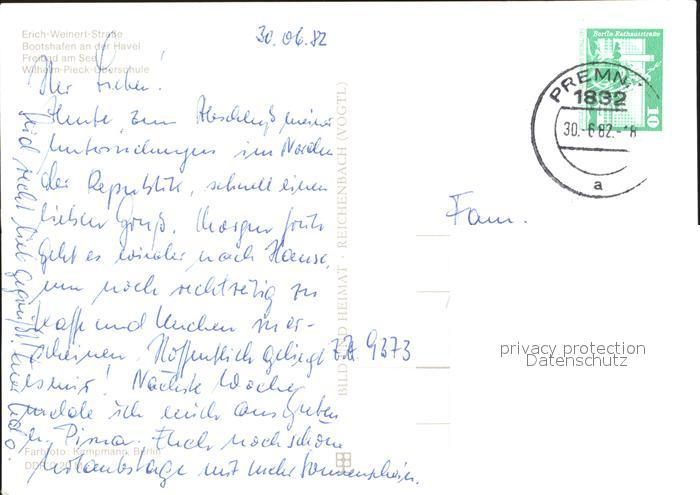 Erich-Weinert-Straße
Bootshafen an der Havel
Freibad am See
Wilhelm-Pieck-Oberschule
30.06.82
Berlin Rathausstraße
10
PREMN
1832
30.-6.82.-18
a
Ihr Lieben!
Heute, zum Abschluß meiner
Untersuchungen im Norden
der Republik, schnell einen
lieben Gruß. Morgen früh
geht es wieder nach Hause,
um noch rechtzeitig zu
Kaffe und Kuchen zu er-
scheinen. Hoffentlich gelingt
es mir! Nächste Woche
melde ich mich aus
Pirna. Euch noch schöne
Urlaubstage mit mehr Sonnenschein.
Seid recht lieb gegrüßt! Euer
Fam.
9373
BILD UND HEIMAT · REICHENBACH (VOGTL)
privacy protection
Datenschutz
Farbfoto: Kampmann, Berlin